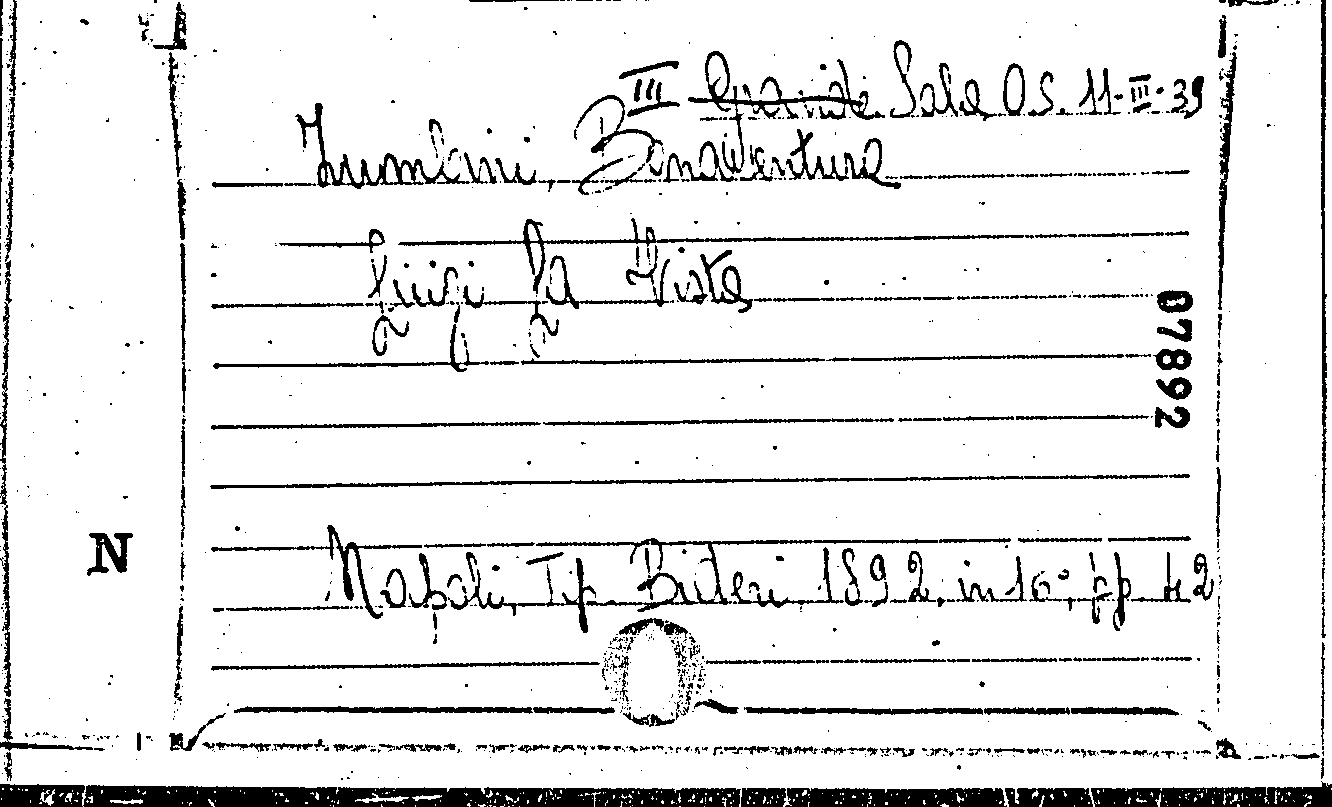 III Grande Sala OS. 11-III-39
Zumbini, Bonaventura
Luigi La Vista
07892
N
Napoli, Tip. 1892, in 16°, pp. 42